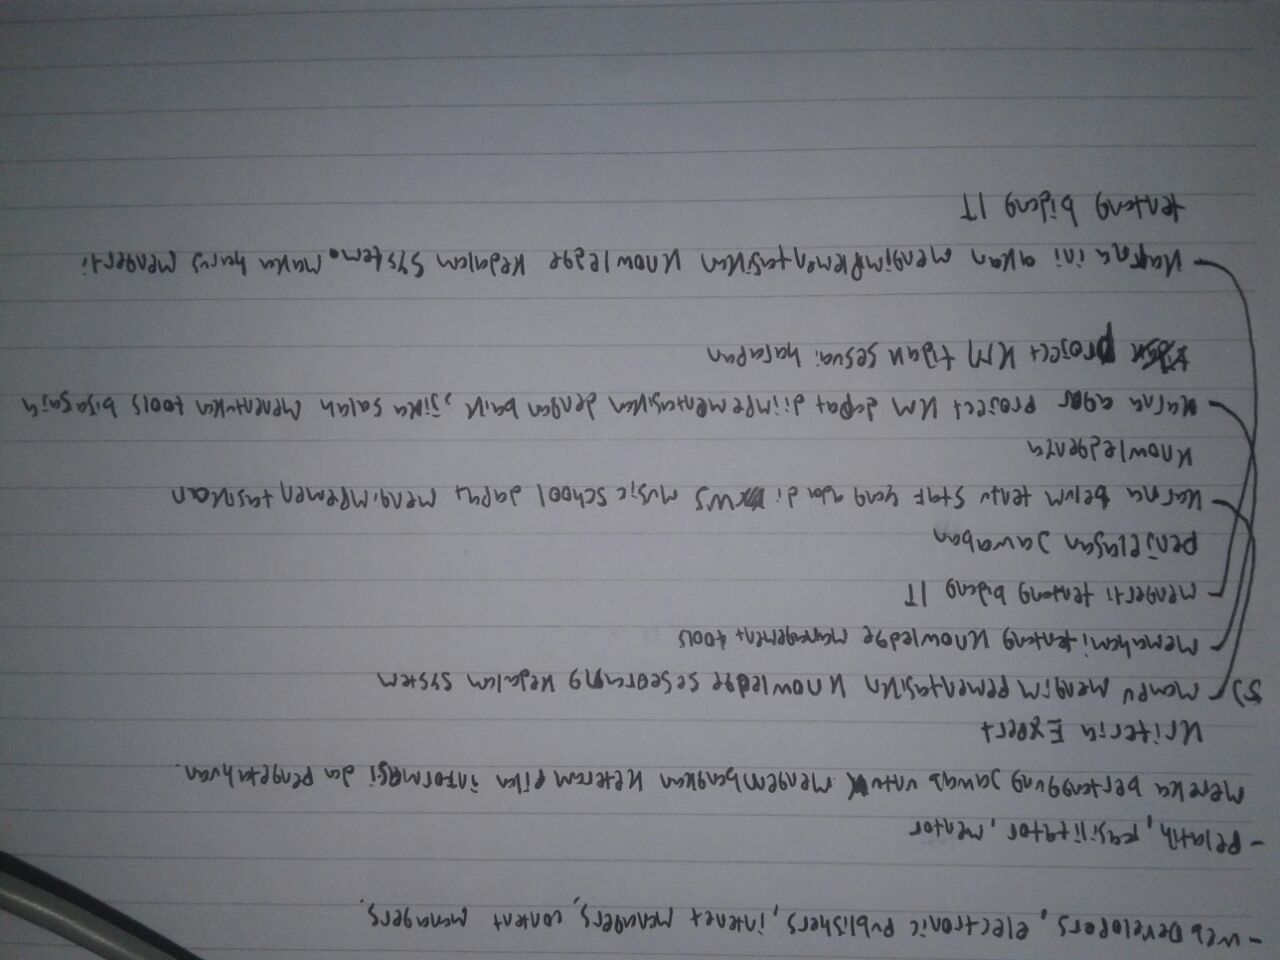 - Web Developers, electronic publishers, intenet menagers, content menagers.
- Pelatih, Fasilitator, mentor
mereka bertenggung jawab untuk mengembangkan keterampilan informasi dan pengetahuan.
Kriteria Expert
5) mampu mengimpementasikn knowledge seseorang kedalam system
memahami tentang knowledge management tools
mengerti tentang bidang IT
Penjelasan Jawaban
Karna belum tentu staf yang ada di WS music school dapat mengimpementasikan
knowledgenya
Karna agar project KM dapat diimpementasikan dengan baik, jika salah menentukan tools bisa saja
project KM tidak sesuai harapan
Karna ini akan mengimplementasikan knowledge kedalam system maka harus mengerti
tentang bidang IT